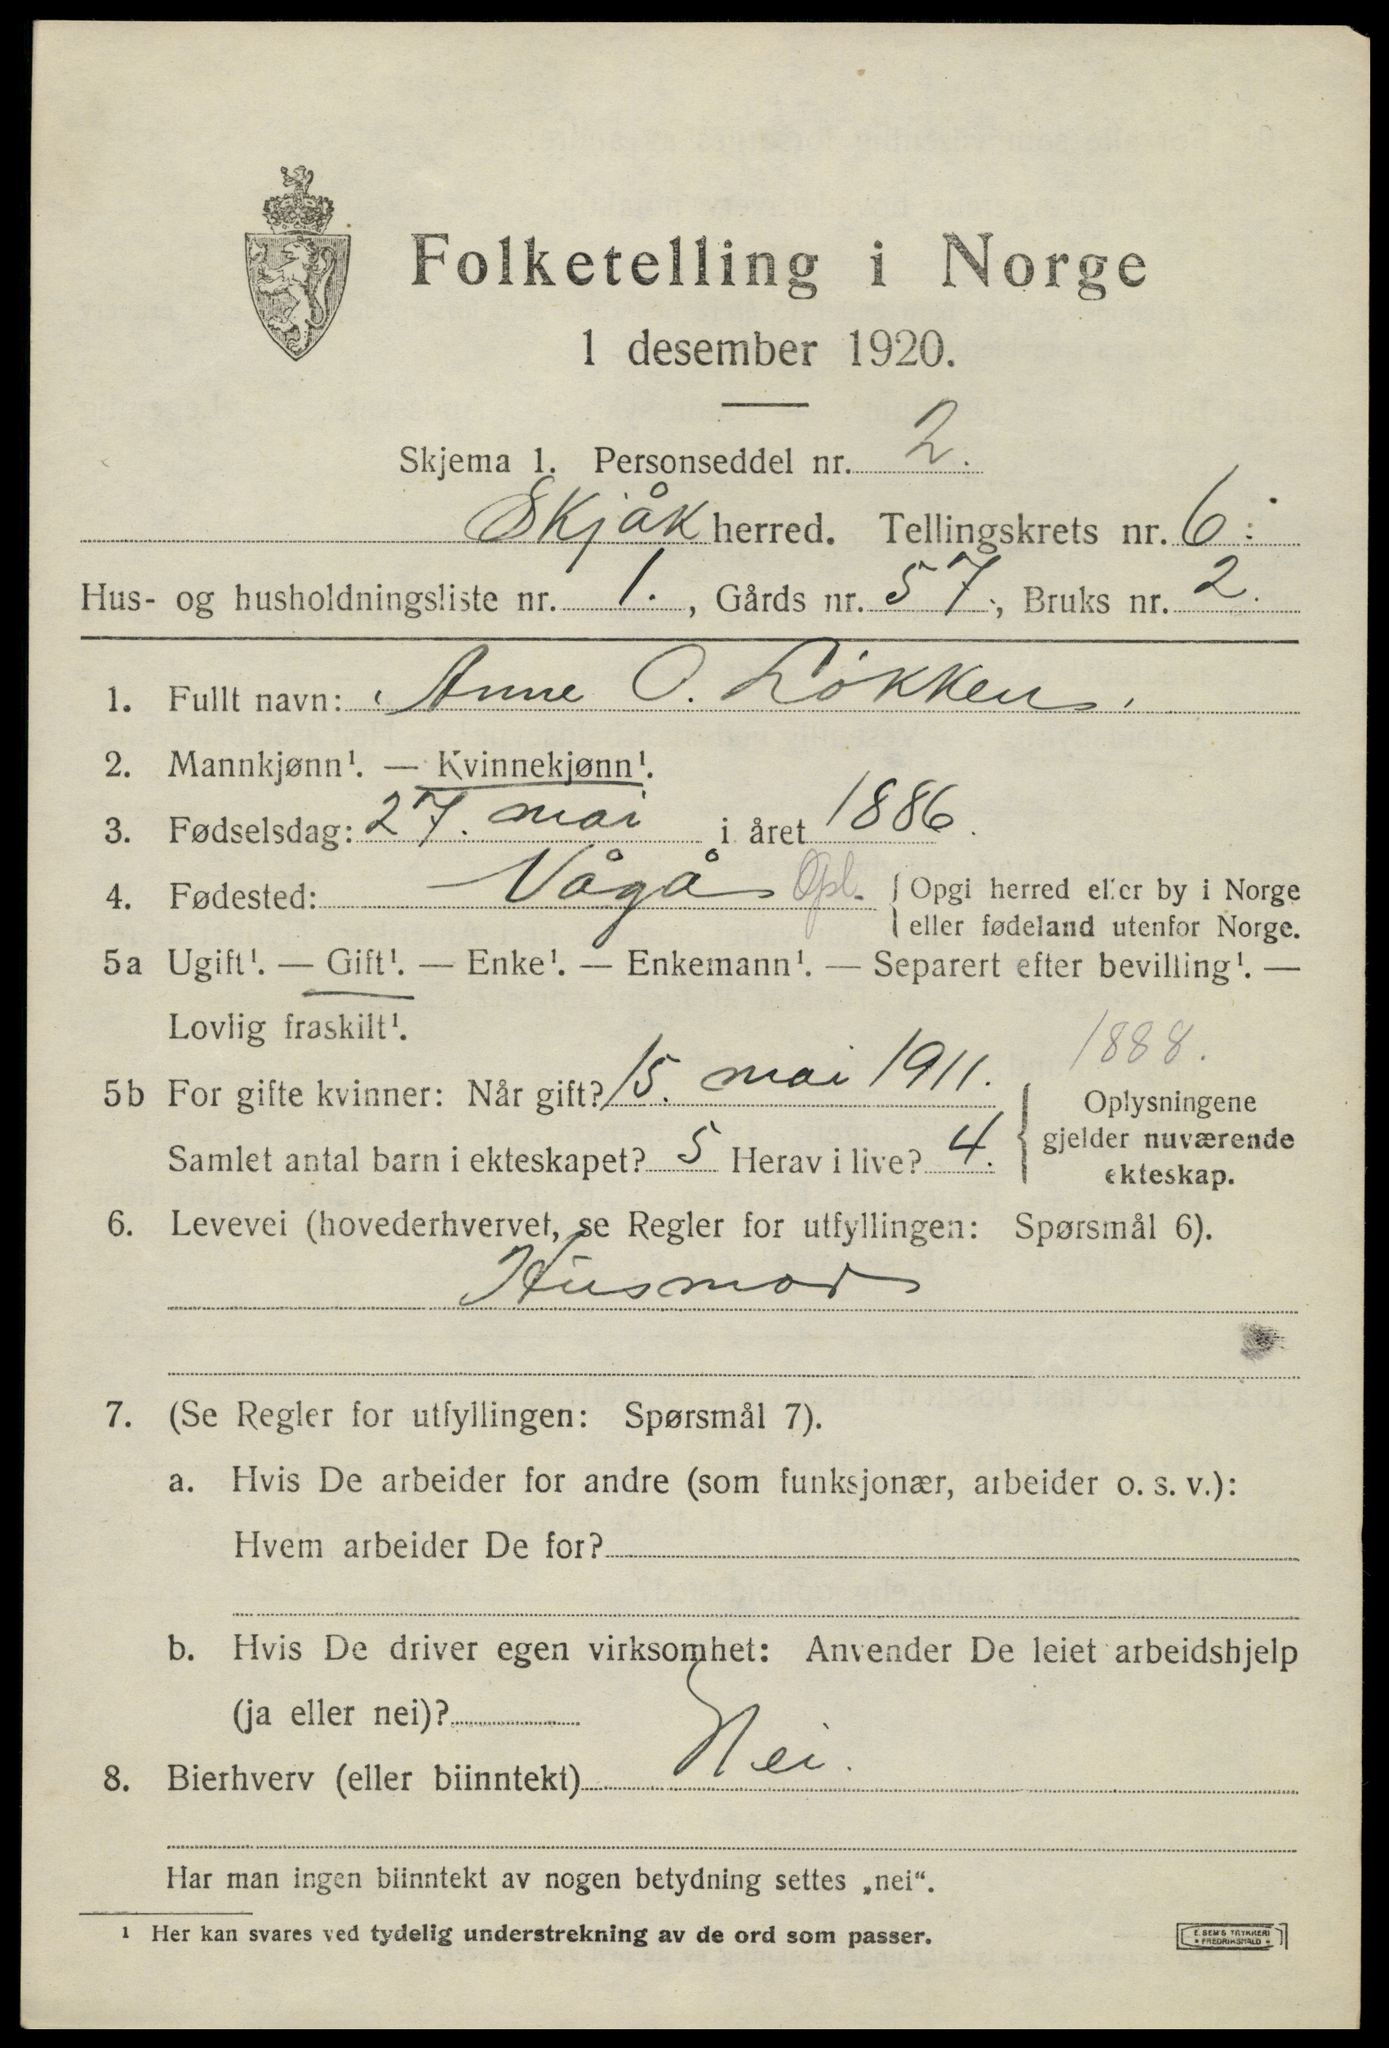 Folketelling i Norge
1 desember 1920.
Skjema 1. Personseddel nr. 2.
Skjåk herred. Tellingskrets nr. 6.
Hus- og husholdningsliste nr. 1., Gårds nr. 57., Bruks nr. 2.
1. Fullt navn: Anne O. Løkken.
2. Mannkjønn¹. — Kvinnekjønn¹.
3. Fødselsdag: 27. mai i året 1886.
4. Fødested: Vågå Opl. { Opgi herred eller by i Norge
eller fødeland utenfor Norge.
5a Ugift¹. — Gift¹. — Enke¹. — Enkemann¹. — Separert efter bevilling¹. —
Lovlig fraskilt¹.
1888.
5b For gifte kvinner: Når gift? 15. mai 1911.
Samlet antal barn i ekteskapet? 5 Herav i live? 4.
{ Oplysningene
gjelder nuværende
ekteskap.
6. Levevei (hovederhvervet, se Regler for utfyllingen: Spørsmål 6).
Husmor
7. (Se Regler for utfyllingen: Spørsmål 7).
a. Hvis De arbeider for andre (som funksjonær, arbeider o. s. v.):
Hvem arbeider De for?
b. Hvis De driver egen virksomhet: Anvender De leiet arbeidshjelp
(ja eller nei)?
8. Bierhverv (eller biinntekt) Nei.
Har man ingen biinntekt av nogen betydning settes „nei“.
¹ Her kan svares ved tydelig understrekning av de ord som passer.
E. SEM'S TRYKKERI
FREDRIKSHALD